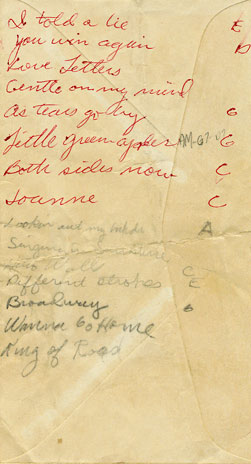 I told a lie E
you win again D
Love Letters
Gentle on my mind
As tears go by G
Little green apples AM-G7 G
Both sides now C
Joanne C
my A
C
Different strokes E
Broadway G
Wanna Go Home
King of Road